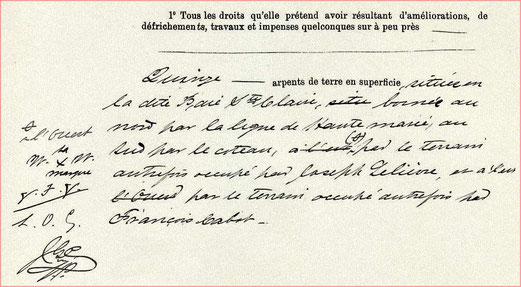 1º Tous les droits qu'elle prétend avoir résultant d'améliorations, de
défrichements, travaux et impenses quelconques sur à peu près
Quinze arpents de terre en superficie, située en
la dite Baie Ste Claire, située bornée au
nord par la ligne de Haute marée, au
sud par le coteau, à l'est, par le terrain
autrefois occupé par Joseph Lelièvre, et à l'est
l'ouest par le terrain occupé autrefois par
François Cabot
à l'Ouest
W. W.
marque
J. J.
L. O. G.